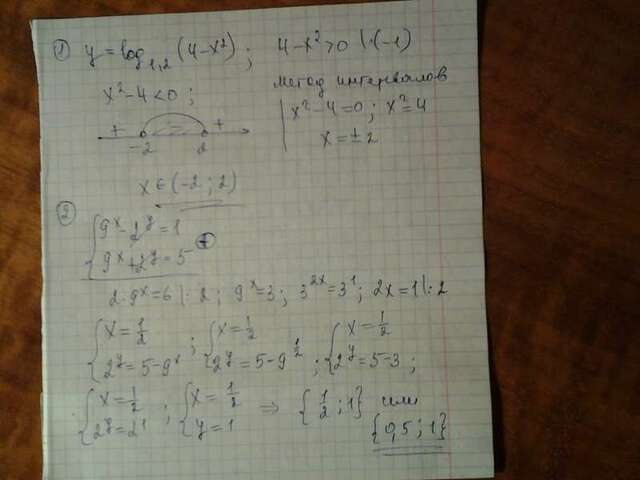 ① y = log₁,₂ (4-x²) ; 4-x²>0 |·(-1)
x²-4<0 ; метод интервалов
x²-4=0 ; x²=4
x = ±2
+ - +
-2 2
x ∈ (-2 ; 2)
②
{ 9ˣ - 2ʸ = 1
{ 9ˣ + 2ʸ = 5 ⊕
2·9ˣ = 6 |:2 ; 9ˣ = 3 ; 3²ˣ = 3¹ ; 2x = 1 |:2
{ x = 1/2 ; { x = 1/2 ; { x = 1/2
{ 2ʸ = 5-9ˣ { 2ʸ = 5-9^(1/2) ; { 2ʸ = 5-3 ;
{ x = 1/2 ; { x = 1/2 ⇒ { 1/2 ; 1 } или
{ 2ʸ = 2¹ { y = 1 { 0,5 ; 1 }